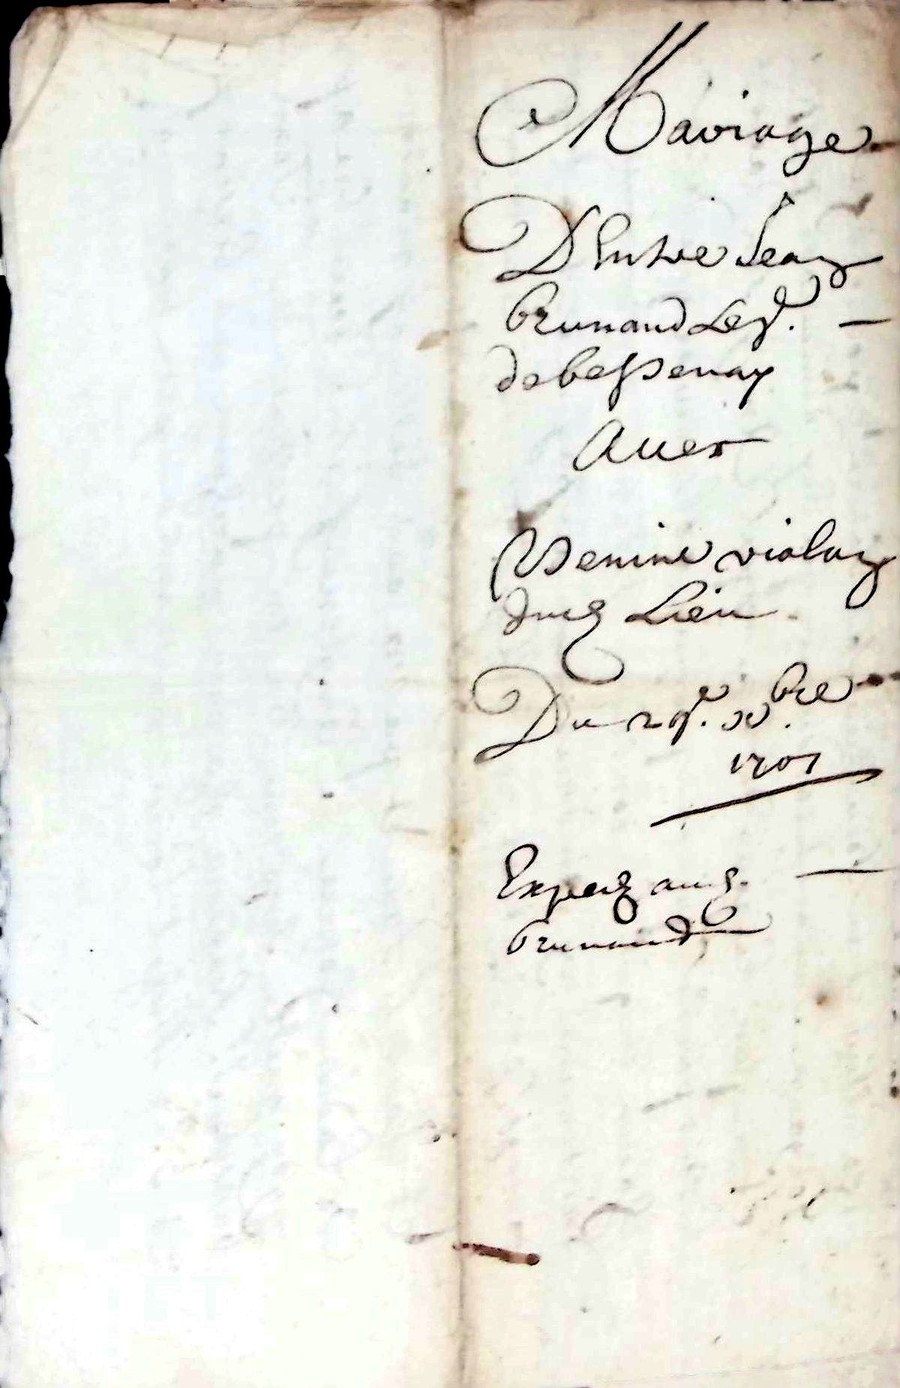 Mariage
D'Entre Jean
brunand Le Je.
de bessenay
Auec
Benine violay
dud Lieu
Du 29e. xbre
1701
Exped aud.
brunand